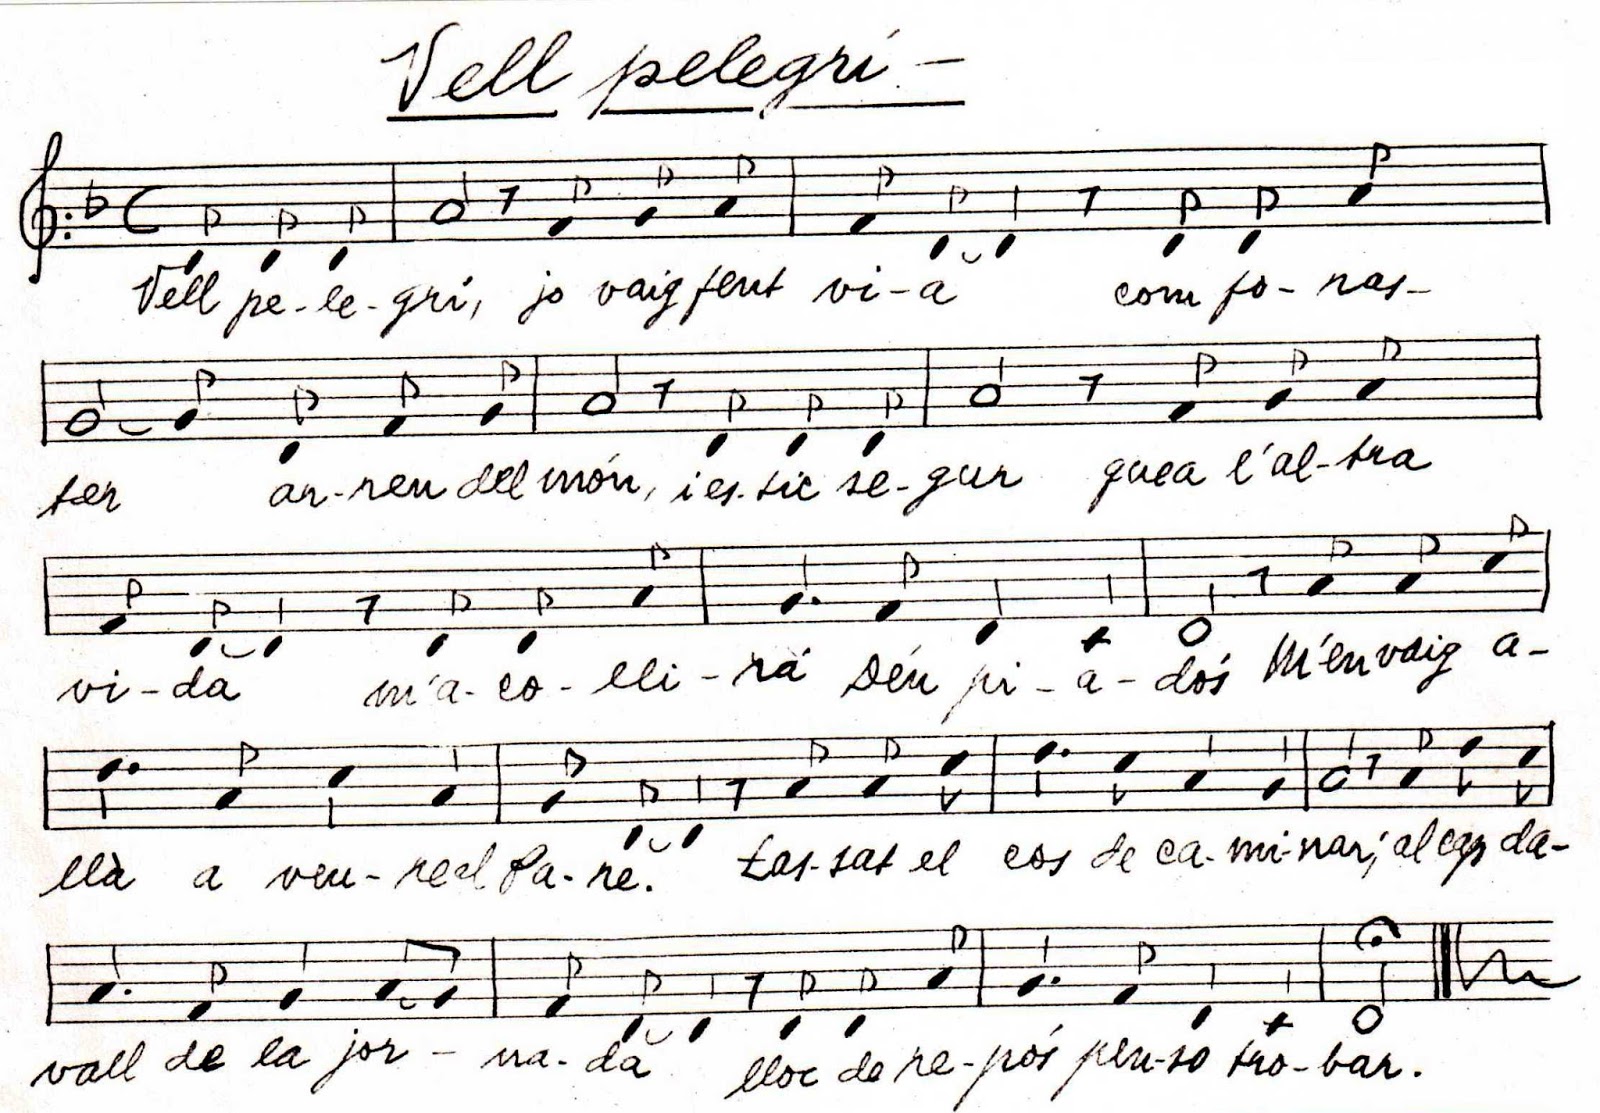 Vell pelegrí -
Vell pe-le-grí, jo vaig fent vi-a com fo-ras-
ter ar-reu del món, i es-tic se-gur que a l'al-tra
vi-da m'a-co-lli-rà Déu pi-a-dós M'en vaig a-
llà a veu-re el Pa-re. Las-sat el cos de ca-mi-nar; al cap da-
vall de la jor-na-da lloc de re-pós pen-so tro-bar.